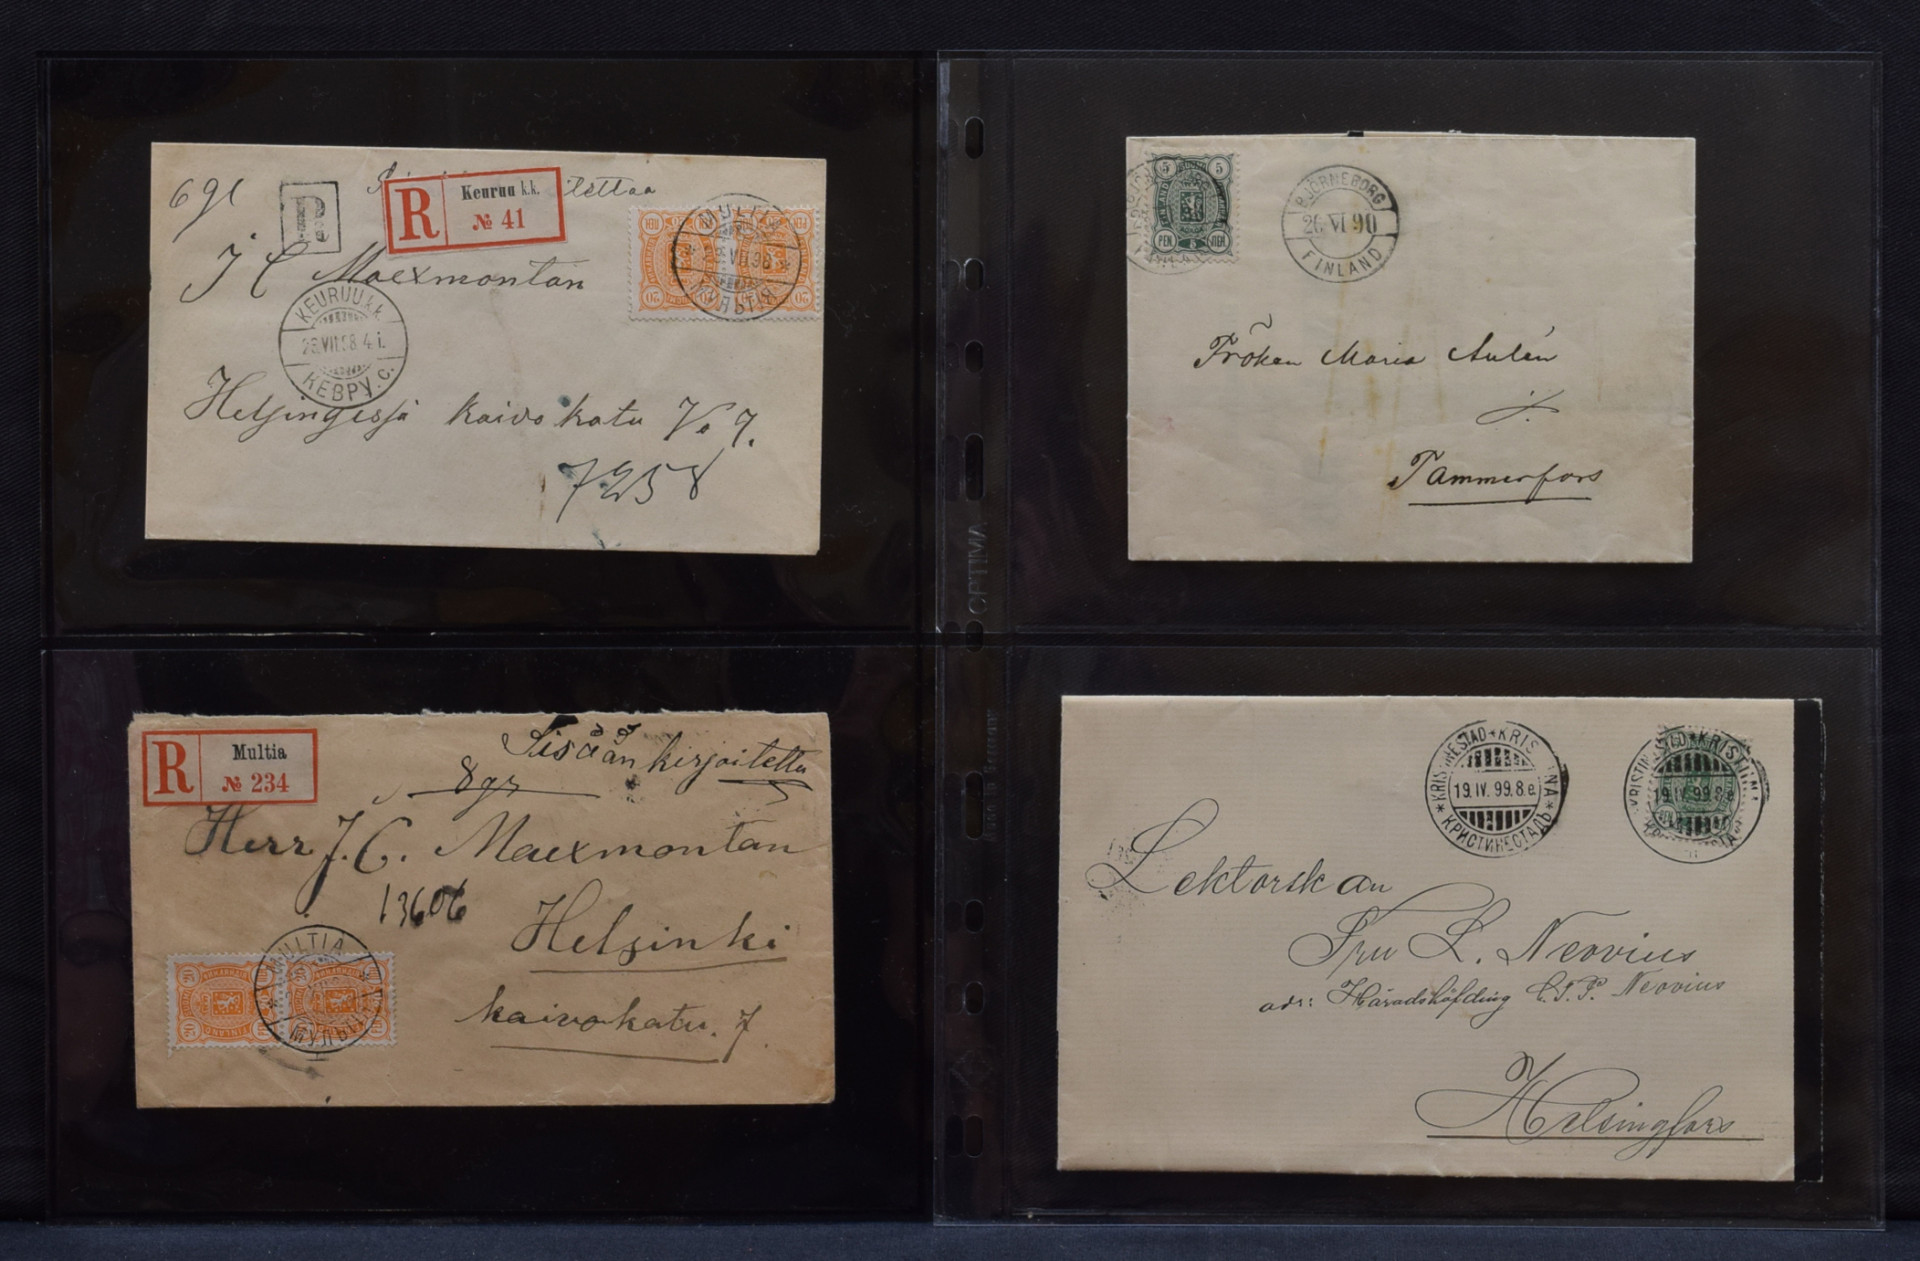 691
R
R
Keuruu k.k.
№ 41
J C Maexmontan
KEURUU k.k.
25.VII.98. 4 i.
КЕВРУ. с.
MULTIA
VII.98
МУЛЬТIЯ
20 20
Helsingissä Kaivokatu No 7.
7258
5 5
PEN. 5 ПЕН.
BJÖRNEBORG
26 VI 90
FINLAND
Fröken Maria Aulén
Tammerfors
OPTIMA
R
Multia
№ 234
Sisäänkirjoitettu
8 gr
Herr J. C. Maexmontan
13606
Helsinki
Kaivokatu. 7.
MULTIA
МУЛЬТIЯ
20 20
FINLAND
KRISTINESTAD * KRISTIINA
19. IV. 99. 8 e.
* КРИСТИНЕСТАДЬ *
KRISTINESTAD * KRISTIINA
19. IV. 99. 8 e.
Lektorskan
Fru L. Neovius
adr: Häradshöfding C. J. P. Neovius
Helsingfors